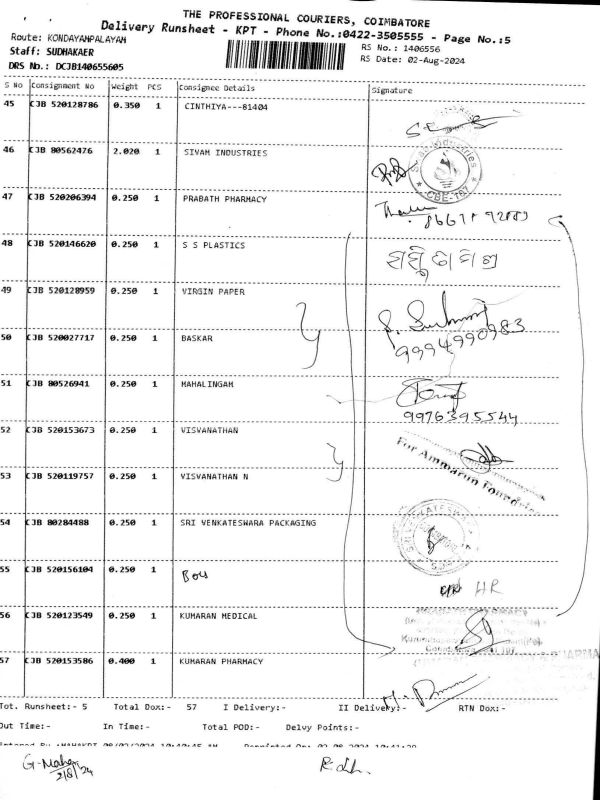 THE PROFESSIONAL COURIERS, COIMBATORE
Delivery Runsheet - KPT - Phone No.:0422-3505555 - Page No.:5
Route: KONDAYAMPALAYAM
RS No.: 1406556
Staff: SUDHAKAER
RS Date: 02-Aug-2024
DRS No.: DCJB140655605
S No Consignment No Weight PCS Consignee Details Signature
45 CJB 520128786 0.350 1 CINTHIYA---81404
46 CJB 80562476 2.020 1 SIVAM INDUSTRIES
CBE-107
47 CJB 520206394 0.250 1 PRABATH PHARMACY
48 CJB 520146620 0.250 1 S S PLASTICS
49 CJB 520128959 0.250 1 VIRGIN PAPER
50 CJB 520027717 0.250 1 BASKAR
9994990983
51 CJB 80526941 0.250 1 MAHALINGAM
9976395544
52 CJB 520153673 0.250 1 VISVANATHAN
For Ammarun Foundries
53 CJB 520119757 0.250 1 VISVANATHAN N
54 CJB 80284488 0.250 1 SRI VENKATESWARA PACKAGING
55 CJB 520156104 0.250 1
HR
56 CJB 520123549 0.250 1 KUMARAN MEDICAL
57 CJB 520153586 0.400 1 KUMARAN PHARMACY
Tot. Runsheet:- 5 Total Dox:- 57 I Delivery:- II Delivery:- RTN Dox:-
Out Time:- In Time:- Total POD:- Delvy Points:-
2/8/24